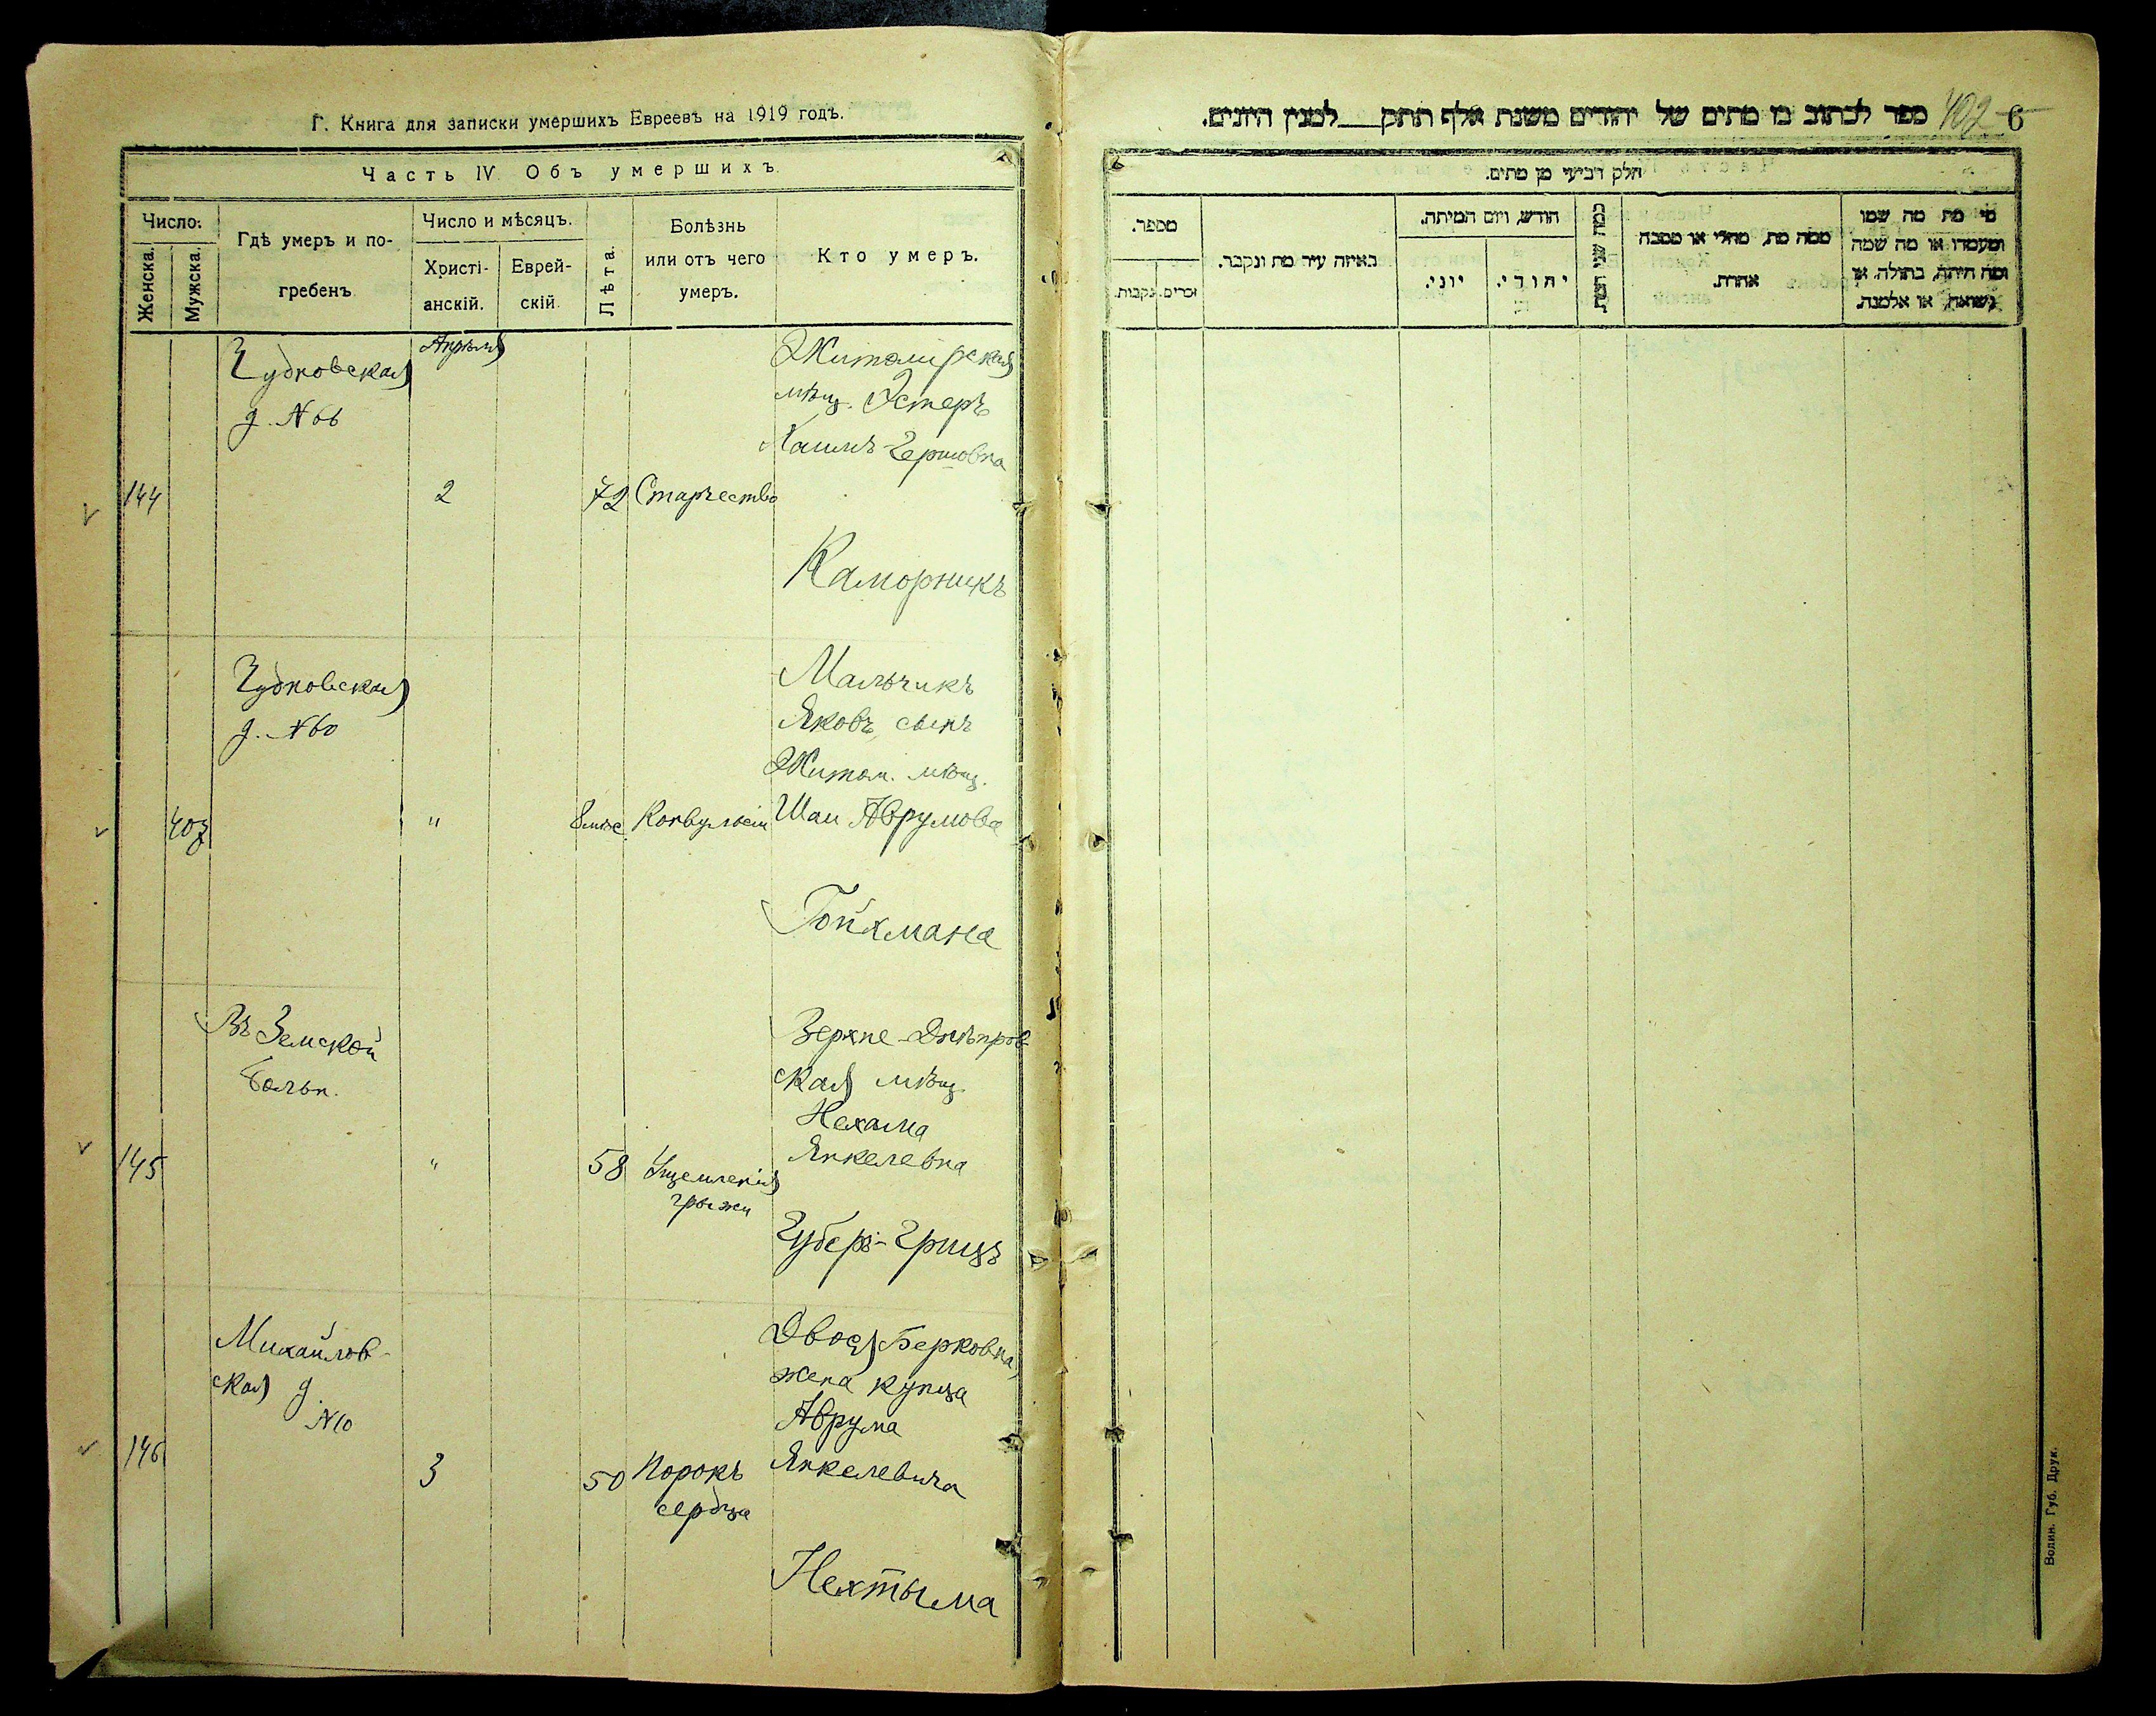 Г. Книга для записки умершихъ Евреевъ на 1919 годъ.
Часть IV. Объ умершихъ.
Число:
Женска.
Мужска.
Гдѣ умеръ и по-
гребенъ
Число и мѣсяцъ.
Христі-
анскій.
Еврей-
скій.
Лѣта.
Болѣзнь
или отъ чего
умеръ.
Кто умеръ.
Чудновская
д. №66
Апрѣля
Житомирская
мѣщ. Эстеръ
Гершовна
144
2
72
Старчество
Каморникъ
Чудновская
д. №60
Мальчикъ
Яковъ, сынъ
Житом. мѣщ.
407
"
8 мѣс.
Конвульсіи
Шаи Аврумова
Гойхмана
Въ Земской
больн.
Верхне-Днѣпров-
ская мѣщ.
Нехама
Янкелевна
145
"
58
Ущемленія
грыжи
Губеръ-Грицъ
Михайлов-
ская д.
№10
Двося Берковна,
жена купца
Аврума
Янкелевича
146
3
50
Порокъ
сердца
Нехтыма
ספר לכתוב בו מתים של יהודים משנת אלף תתק___למנין היונים.
402
6
חלק רביעי מן מתים.
מי מת מה שמו
ומעמדו או מה שמה
ומה היתה, בתולה, או
נשואה, או אלמנה.
ממה מת, מחלי או מסבה
אחרת.
כמה שני המת
חודש, ויום המיתה.
יהודי.
יוני.
באיזה עיר מת ונקבר.
מספר.
זכרים.
נקבות.
Волин. Губ. Друк.